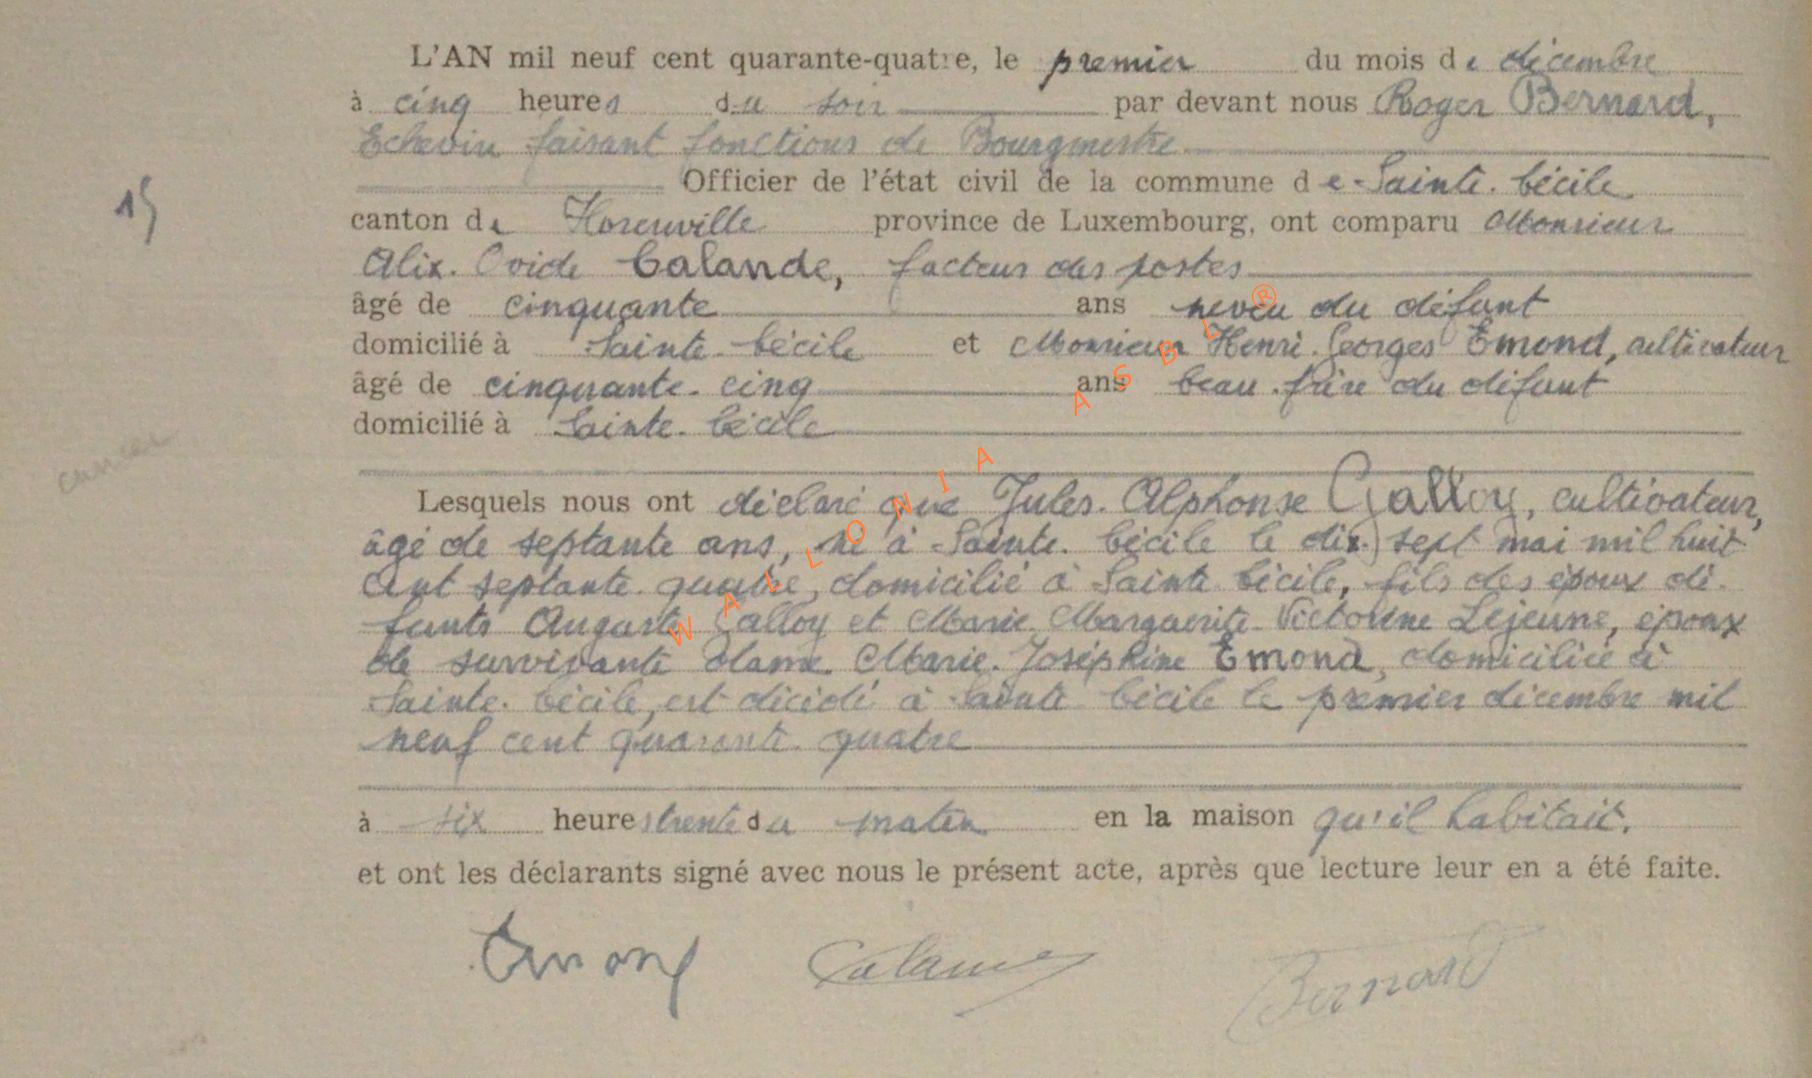 L'AN mil neuf cent quarante-quatre, le premier du mois de décembre
à cinq heures du soir par devant nous Roger Bernard,
Echevin faisant fonctions de Bourgmestre
Officier de l'état civil de la commune de Sainte-Cécile
15
canton de Florenville province de Luxembourg, ont comparu Monsieur
Alix-Ovide Calande, facteur des postes
âgé de cinquante ans neveu du défunt
domicilié à Sainte-Cécile et Monsieur Henri-Georges Emond, cultivateur
âgé de cinquante-cinq ans beau-frère du défunt
domicilié à Sainte-Cécile
cancer
Lesquels nous ont déclaré que Jules-Alphonse Galloy, cultivateur,
âgé de septante ans, né à Sainte-Cécile le dix-sept mai mil huit
cent septante-quatre, domicilié à Sainte Cécile, fils des époux dé-
funts Auguste Galloy et Marie Marguerite Victorine Lejeune, époux
de survivante dame Marie-Joséphine Emond, domiciliée à
Sainte-Cécile, est décédé à Sainte Cécile le premier décembre mil
neuf cent quarante-quatre
à six heures trente du matin en la maison qu'il habitait.
et ont les déclarants signé avec nous le présent acte, après que lecture leur en a été faite.
Emond Calande Bernard
WALLONIA ASBL ®